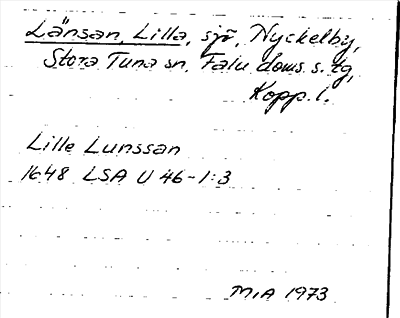 Länsan, Lilla, sjö, Nyckelby,
Stora Tuna sn, Falu doms. s. tg,
Kopp. l.
Lille Lunssan
1648 LSA U 46-1:3
MiA 1973